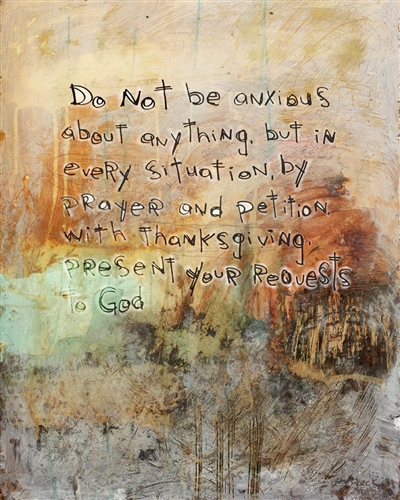 Do Not be anxious
about anything, but in
eveRy situation, by
pRayeR and petition.
with thanksgiving.
pResent youR Requests
to God